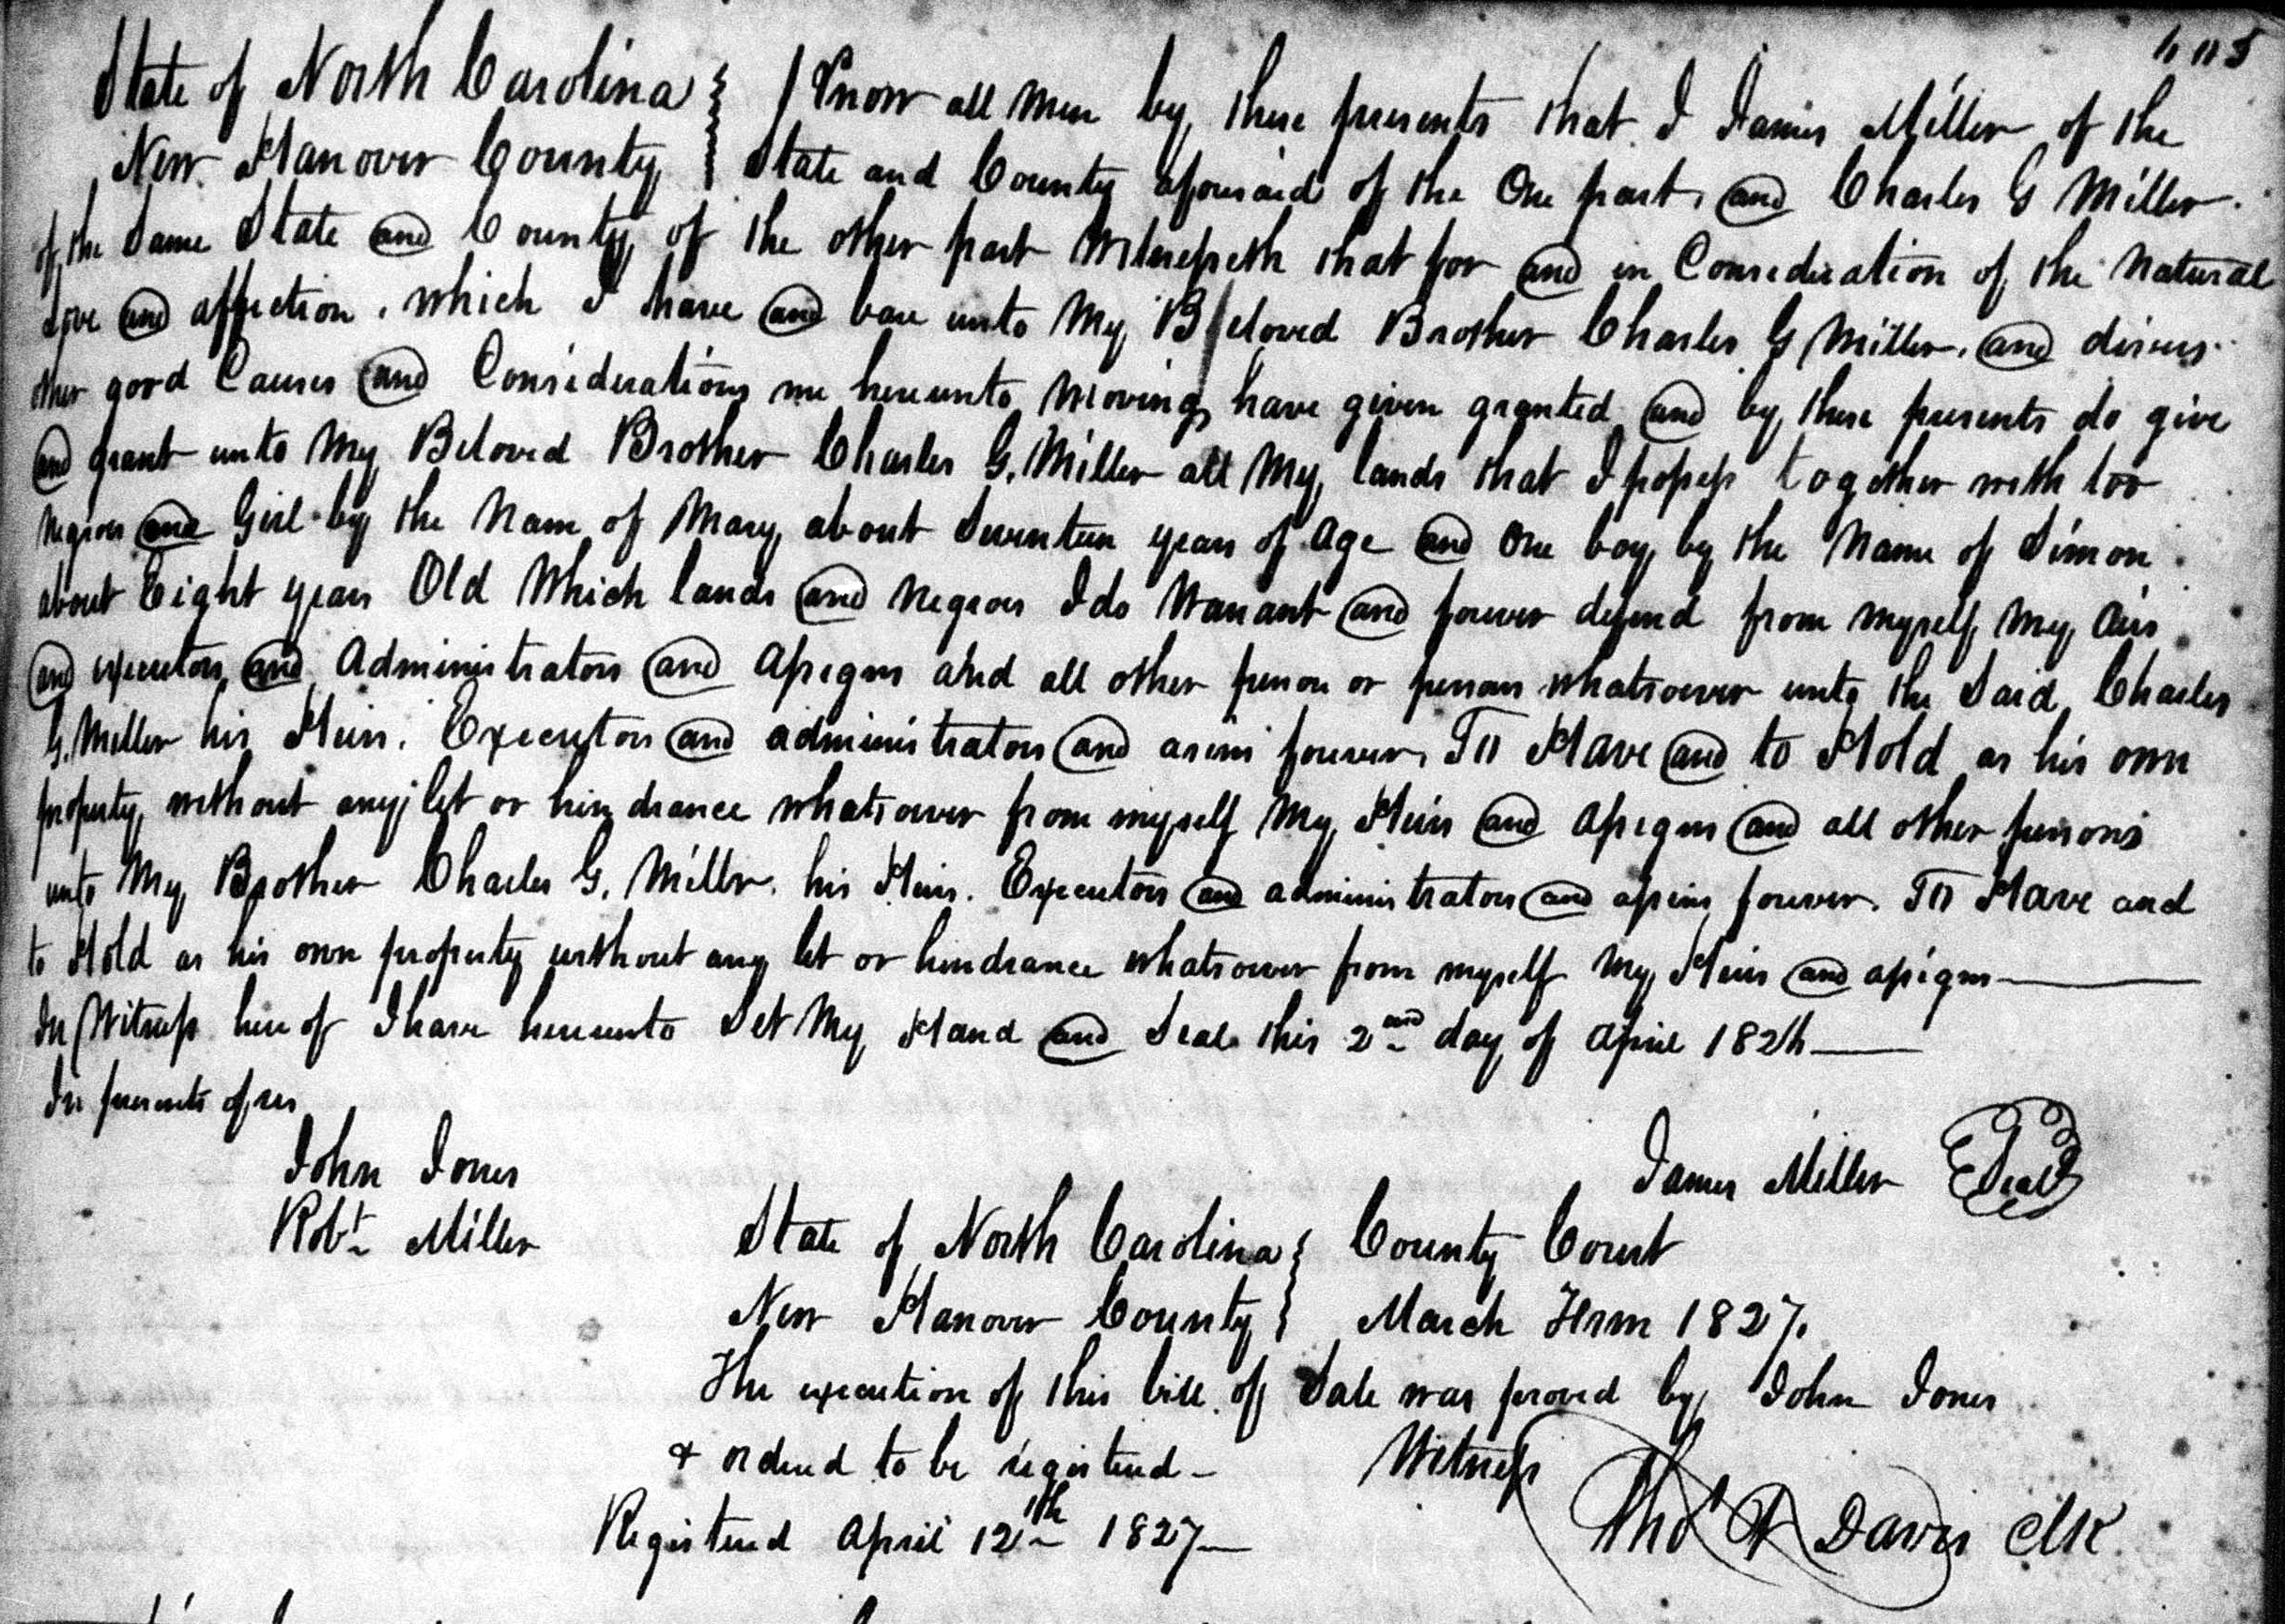 405
State of North Carolina } Know all men by these presents that I James Miller of the
New Hanover County } State and County aforesaid of the One part, and Charles G Miller.
of the Same State and County of the other part Witnesseth that for and in Consideration of the Natural
Love and affection, which I have and bare unto My Beloved Brother Charles G Miller, and divers
other good Causes and Considerations me hereunto Moving have given granted and by these presents do give
and grant unto My Beloved Brother Charles G. Miller all My lands that I possess together with too
Negroes one Girl by the Name of Mary about Seventeen years of Age and One boy by the Name of Simon
about Eight years Old Which lands and Negroes I do Warrant and forever defend from myself My Airs
and executors and Administrators and Assigns and all other person or persons whatsoever unto the Said Charles
G. Miller his Heirs. Executors and administrators and asins forever, To Have and to Hold as his own
property without any let or hindrance whatsoever from myself My Heirs and Assigns and all other persons
unto My Brother Charles G. Miller, his Heirs. Executors and administrators and assins forever. To Have and
to Hold as his own property without any let or hindrance whatsoever from myself My Heirs and assigns
In Witness here of I have hereunto Set My Hand and Seal this 2nd day of April 1824
In presents of us
John Jones
James Miller Seal
Robt Miller
State of North Carolina } County Court
New Hanover County } March Term 1827.
The execution of this bill of Sale was proved by John Jones
& ordered to be registered - Witness
Registered April 12th 1827 Thos F Davis Clk